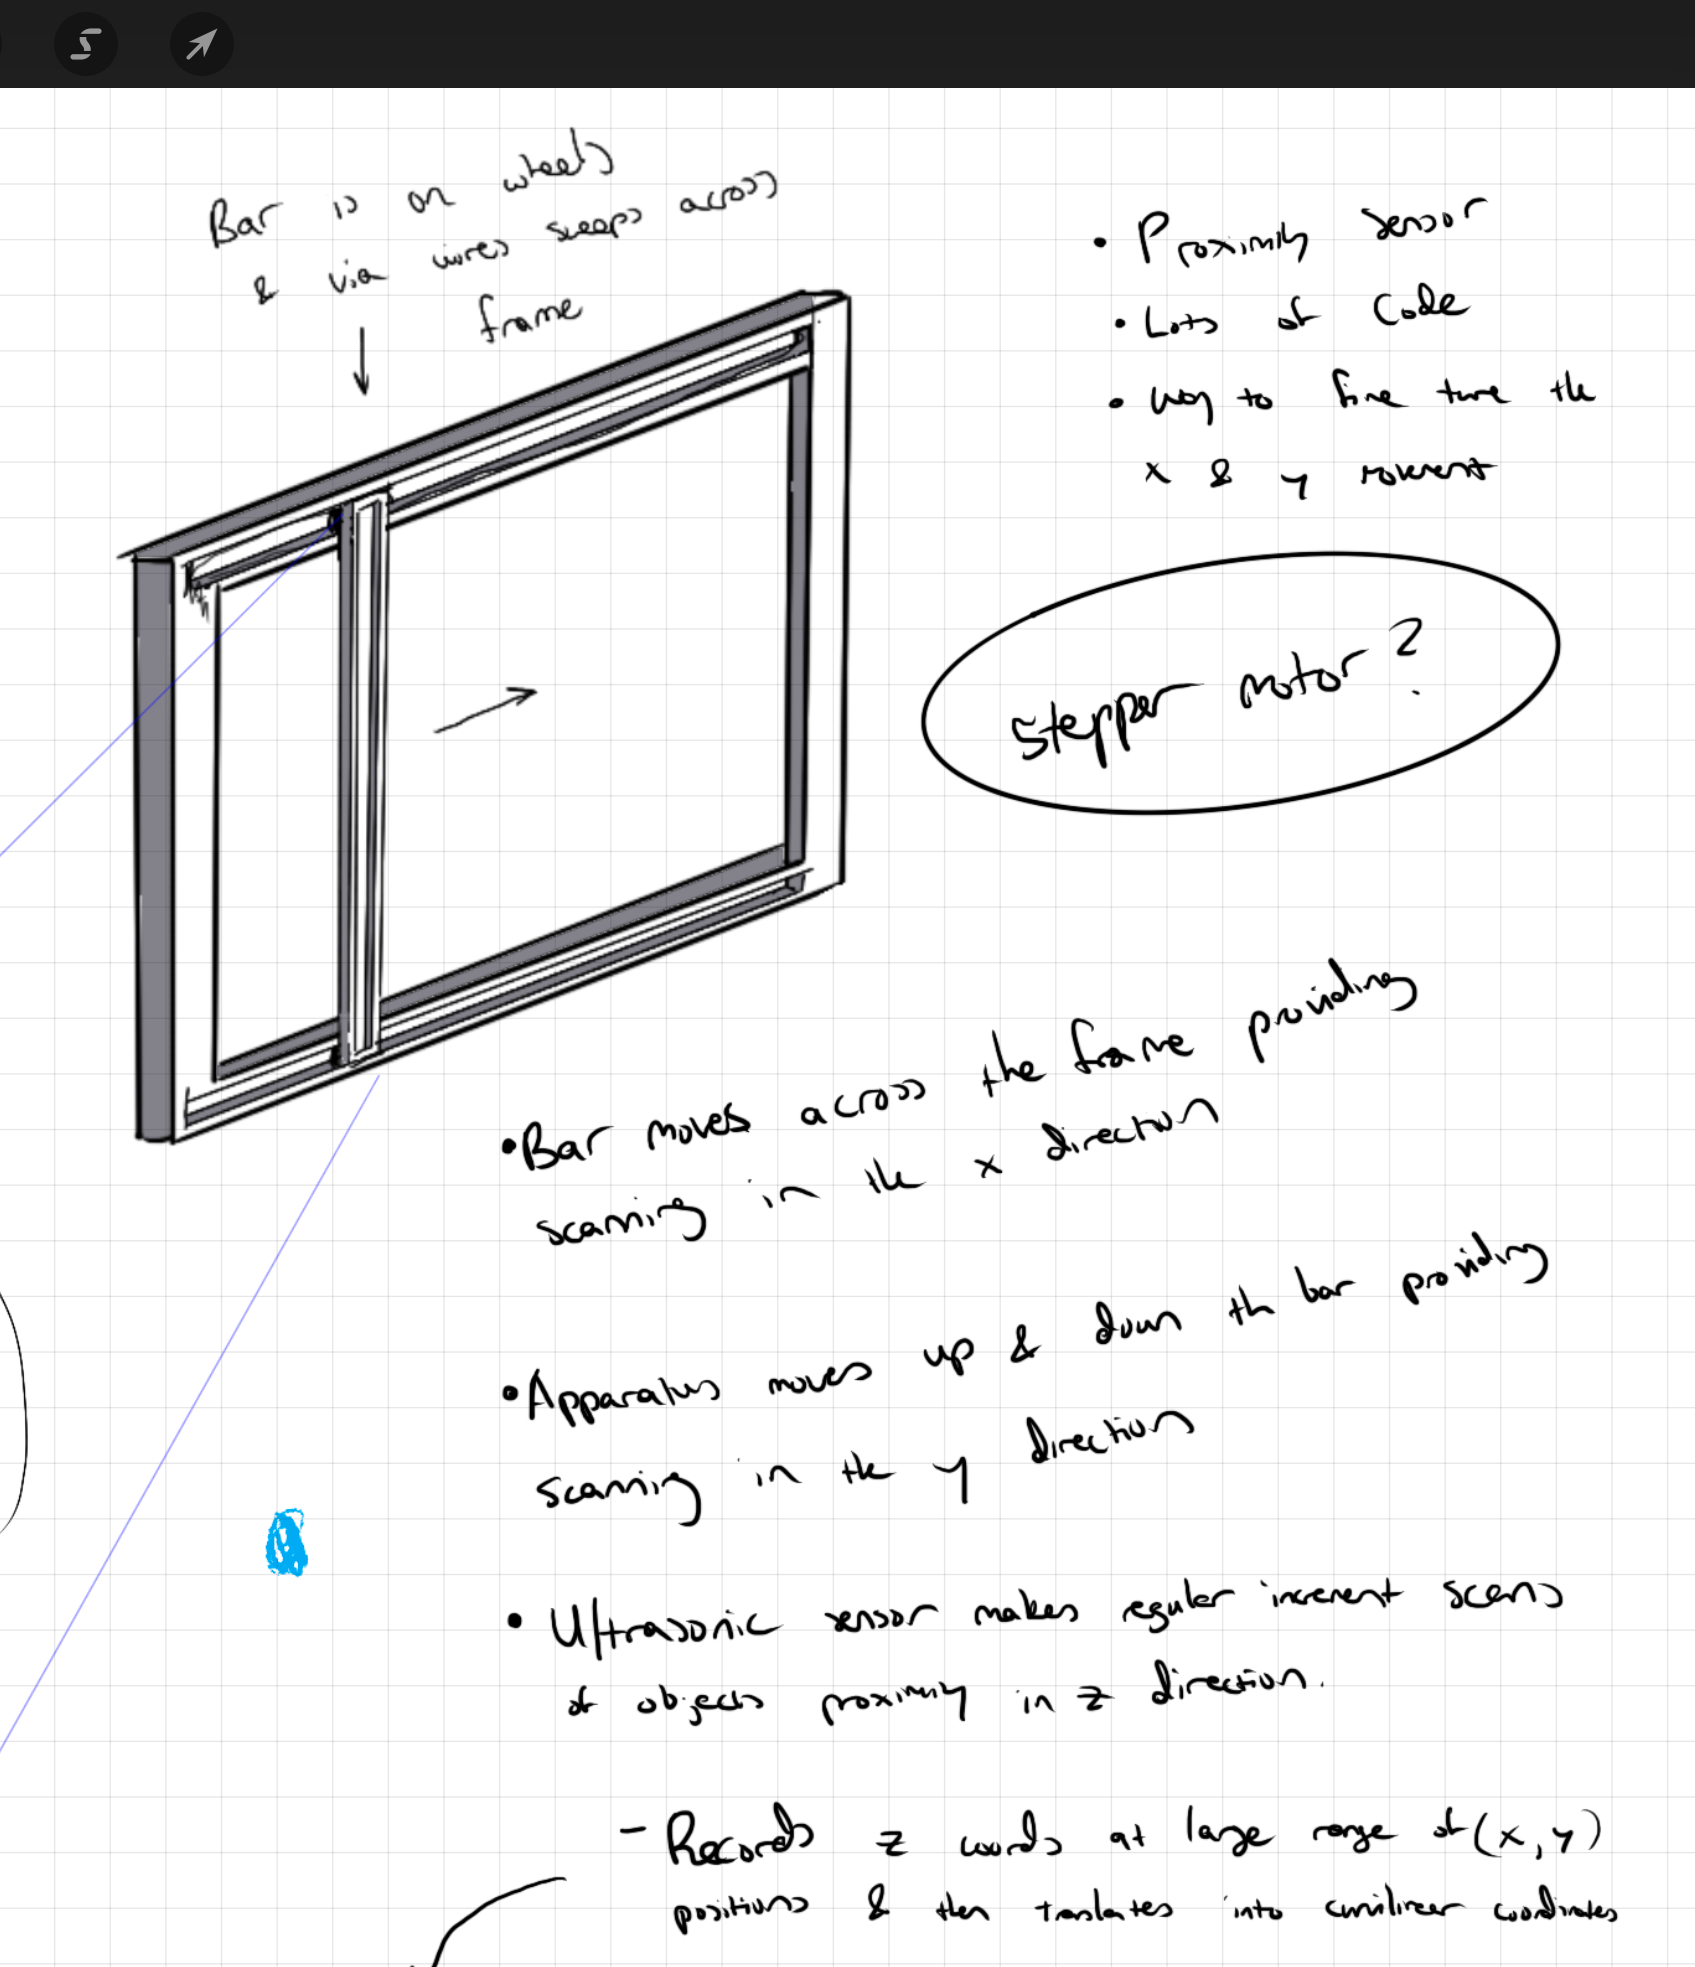 Bar is on wheels
& via wires sweeps across
frame
• Proximity sensor
• Lots of Code
• way to fine tune the
x & y movement
Stepper motor?
• Bar moves across the frame providing
scanning in the x direction
• Apparatus moves up & down the bar providing
scanning in the y direction
• Ultrasonic sensor makes regular increment scans
of objects proximity in z direction.
- Records z coords at large range of (x, y)
positions & then translates into curvilinear coordinates